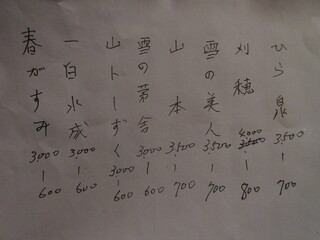 ひら泉 3,500 ー 700
刈穂 4,000 ー 800
雪の美人 3,500 ー 700
山本 3,500 ー 700
雪の茅舎 3,000 ー 600
山ト一ず く 3,000 ー 600
一白水成 3,000 ー 600
春がすみ 3,000 ー 600